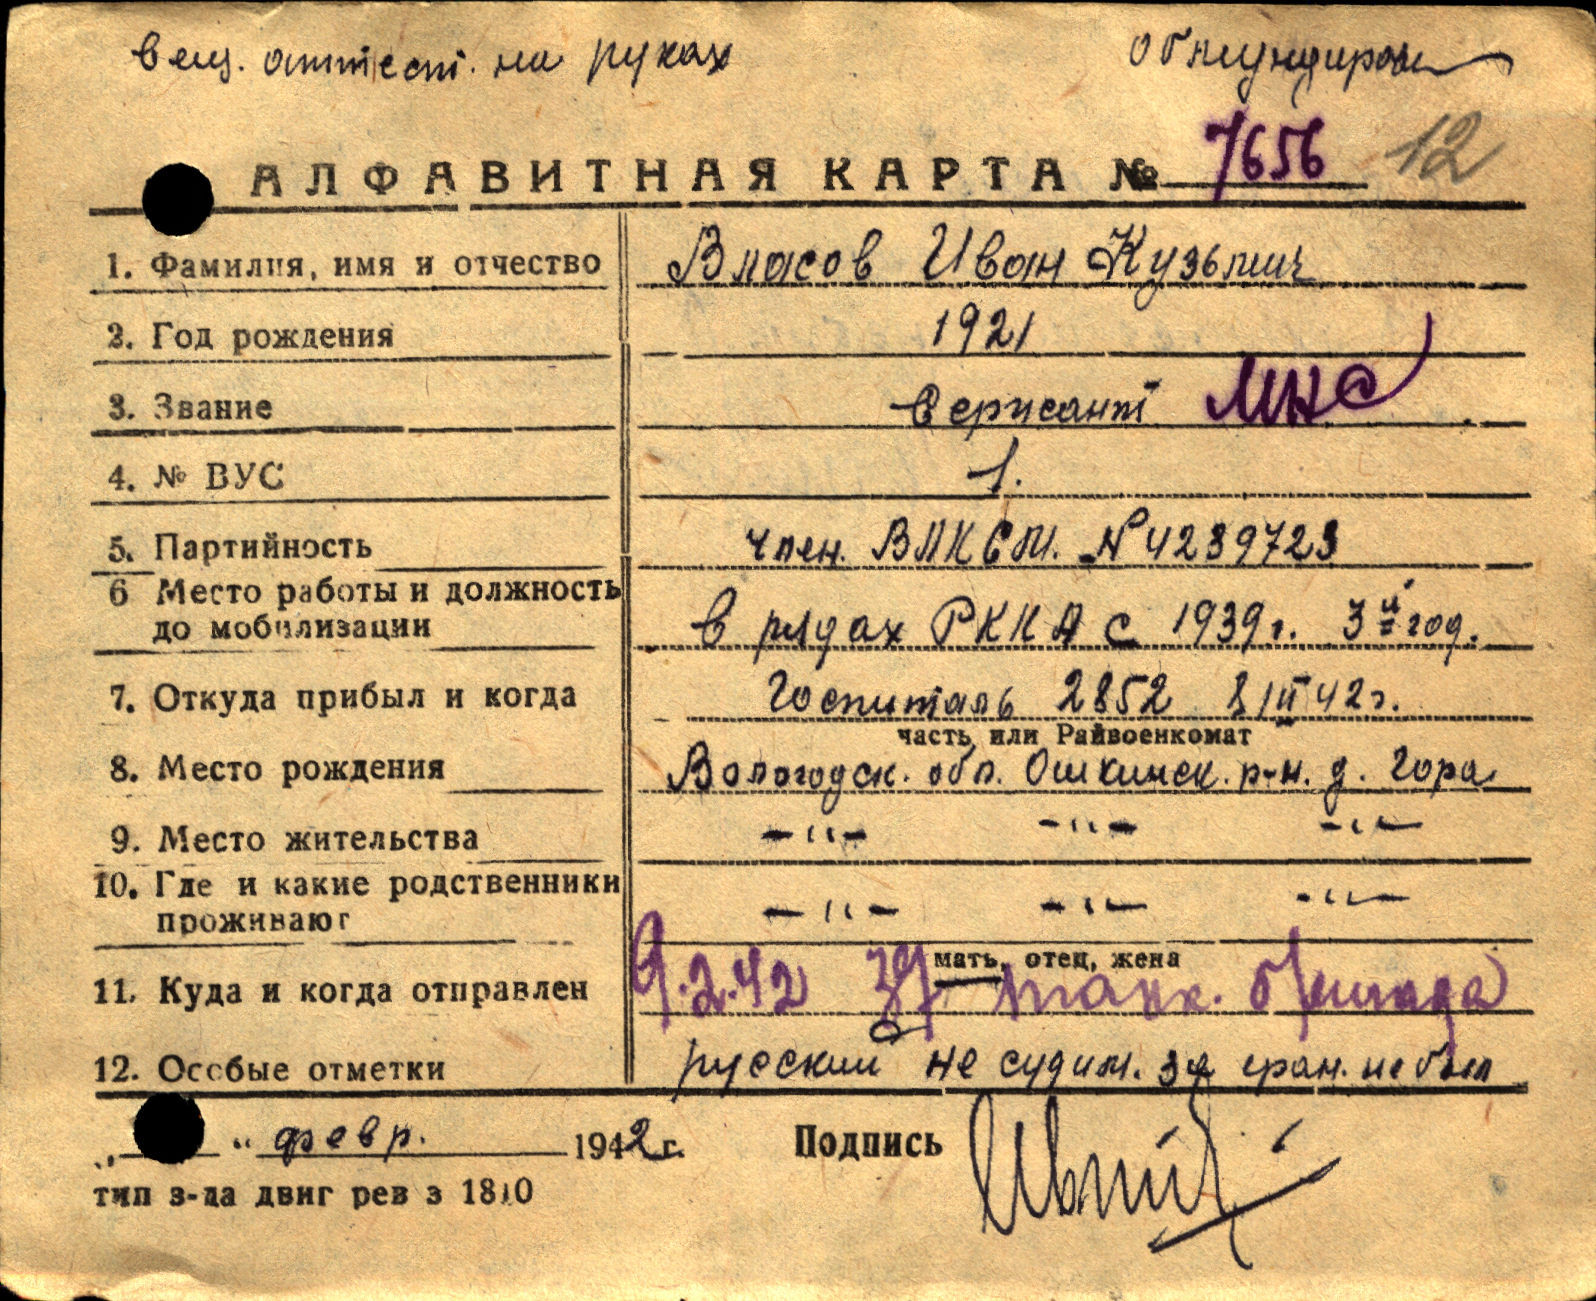 вещ. аттест. на руках обмундирован
АЛФАВИТНАЯ КАРТА № 7656 12
1. Фамилия, имя и отчество Власов Иван Кузьмич
2. Год рождения 1921
3. Звание Сержант МНС
4. № ВУС 1.
5. Партийность член. ВЛКСМ. № 4239723
6 Место работы и должность
до мобилизации в рядах РККА с 1939г. 3й год.
7. Откуда прибыл и когда Госпиталь 2852 8/II 42г.
часть или Райвоенкомат
8. Место рождения Вологодск. обл. Ошкинск. р-н. д. Гора
9. Место жительства -"- -"- -"-
10. Где и какие родственники
проживают -"- -"- -"-
мать, отец, жена
11. Куда и когда отправлен 9.2.42 39 танк. бригада
12. Особые отметки русский не судим. за гран. не был
" " февр. 1942 г. Подпись
тип з-да двиг рев з 1810